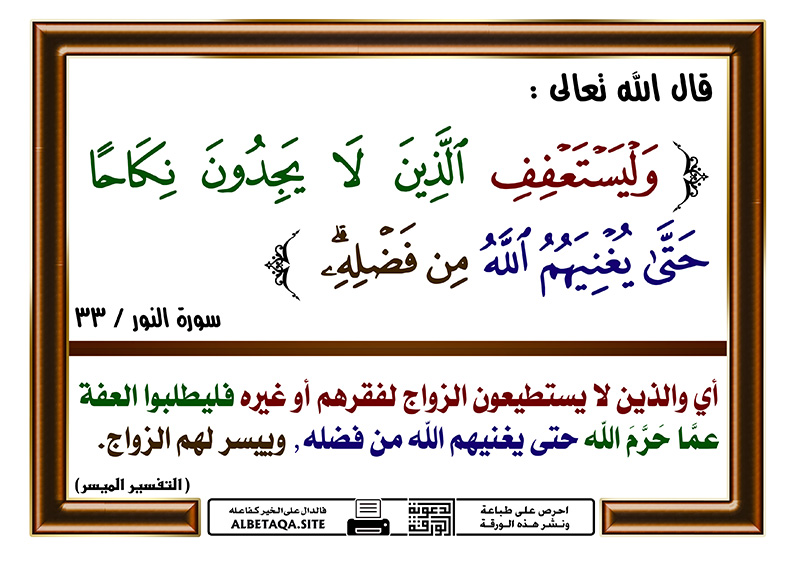 قال الله تعالى :
﴿ وَلْيَسْتَعْفِفِ ٱلَّذِينَ لَا يَجِدُونَ نِكَاحًا
حَتَّىٰ يُغْنِيَهُمُ ٱللَّهُ مِن فَضْلِهِۦۗ ﴾
سورة النور / ٣٣
أي والذين لا يستطيعون الزواج لفقرهم أو غيره فليطلبوا العفة
عمَّا حَرَّمَ الله حتى يغنيهم الله من فضله, وييسر لهم الزواج.
(التفسير الميسر)
احرص على طباعة
ونشر هذه الورقة
الورقة الدعوية
فالدال على الخير كفاعله
ALBETAQA.SITE